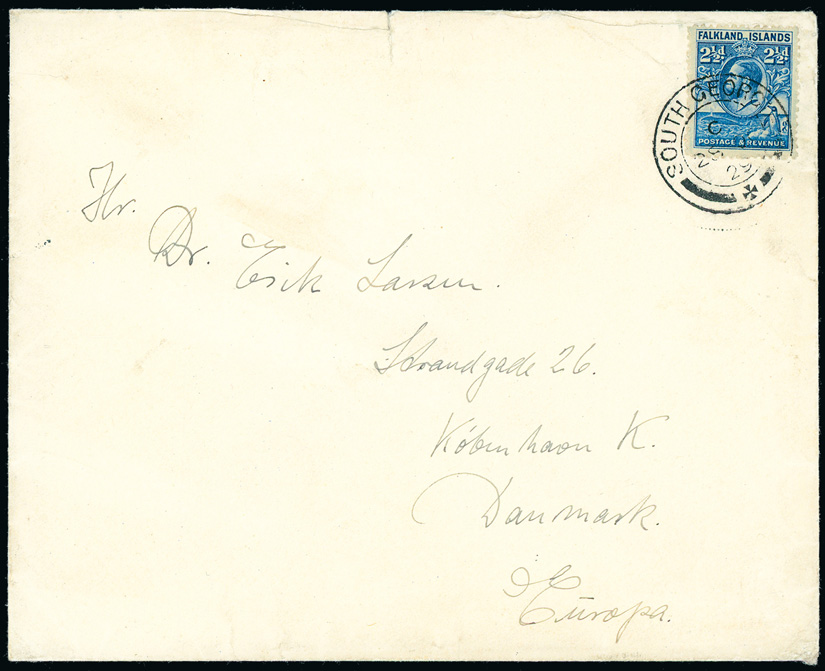 FALKLAND ISLANDS
2½d 2½d
POSTAGE & REVENUE
SOUTH GEORGIA
Hr.
Dr. Erik Larsen.
Strandgade 26.
København K.
Danmark.
Europa.